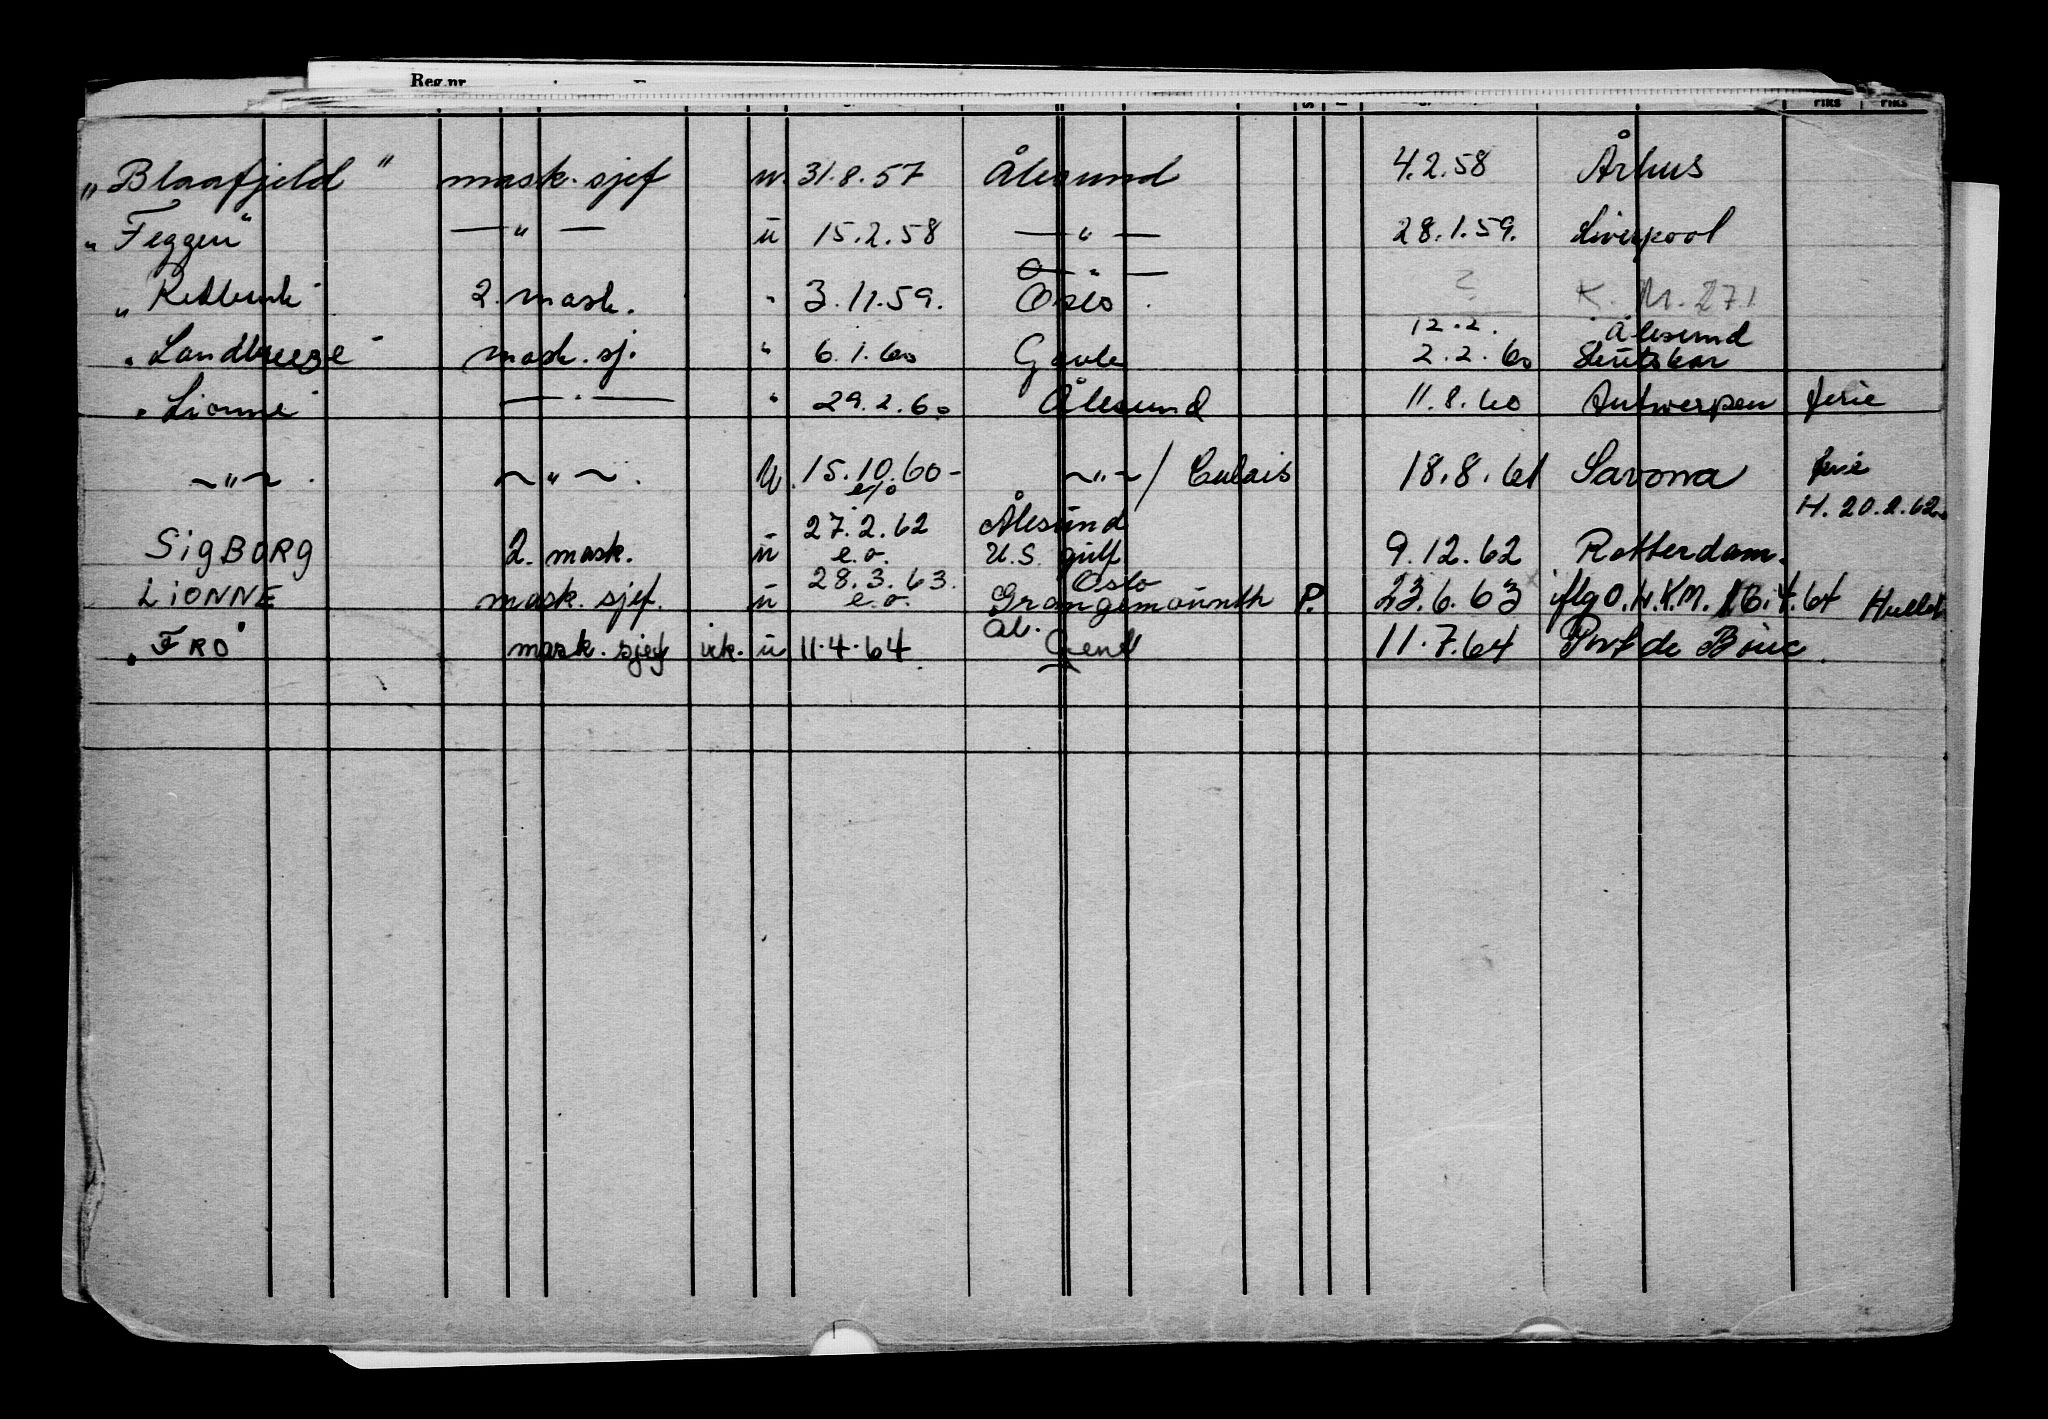 Reg.nr.
FIKS FIKS
„Blaafjeld" mask. sjef u. 31.8.57 Ålesund 4.2.58 Århus
„Feggen" —"— ü 15.2.58 —"— 28.1.59. Liverpool
—"—
„ 2. mask. " 3.11.59. Oslo. ? K. M. 271
12.2. Ålesund
„Landbreeze" mask. sj. " 6.1.60 Gavle 2.2.60
„Lionne" —"— " 29.2.60 Ålesund 11.8.60 Antwerpen ferie
~"~. ~"~. U. 15.10.60- ~"~/ Calais 18.8.61 Savona ferie
e/o
H. 20.2.62.
27.2.62 Ålesund
SIGBORG 2. mask. ü e.o. U.S. gulf 9.12.62 Rotterdam.
28.3.63. Oslo
LIONNE mask. sjef. ü e.o. Grangemounth P. 23.6.63 iflg O.H.K.M. 16.4.64
ål.
„FRO" mask. sjef irk. ü 11.4.64 Gent 11.7.64 Port de Bouc.